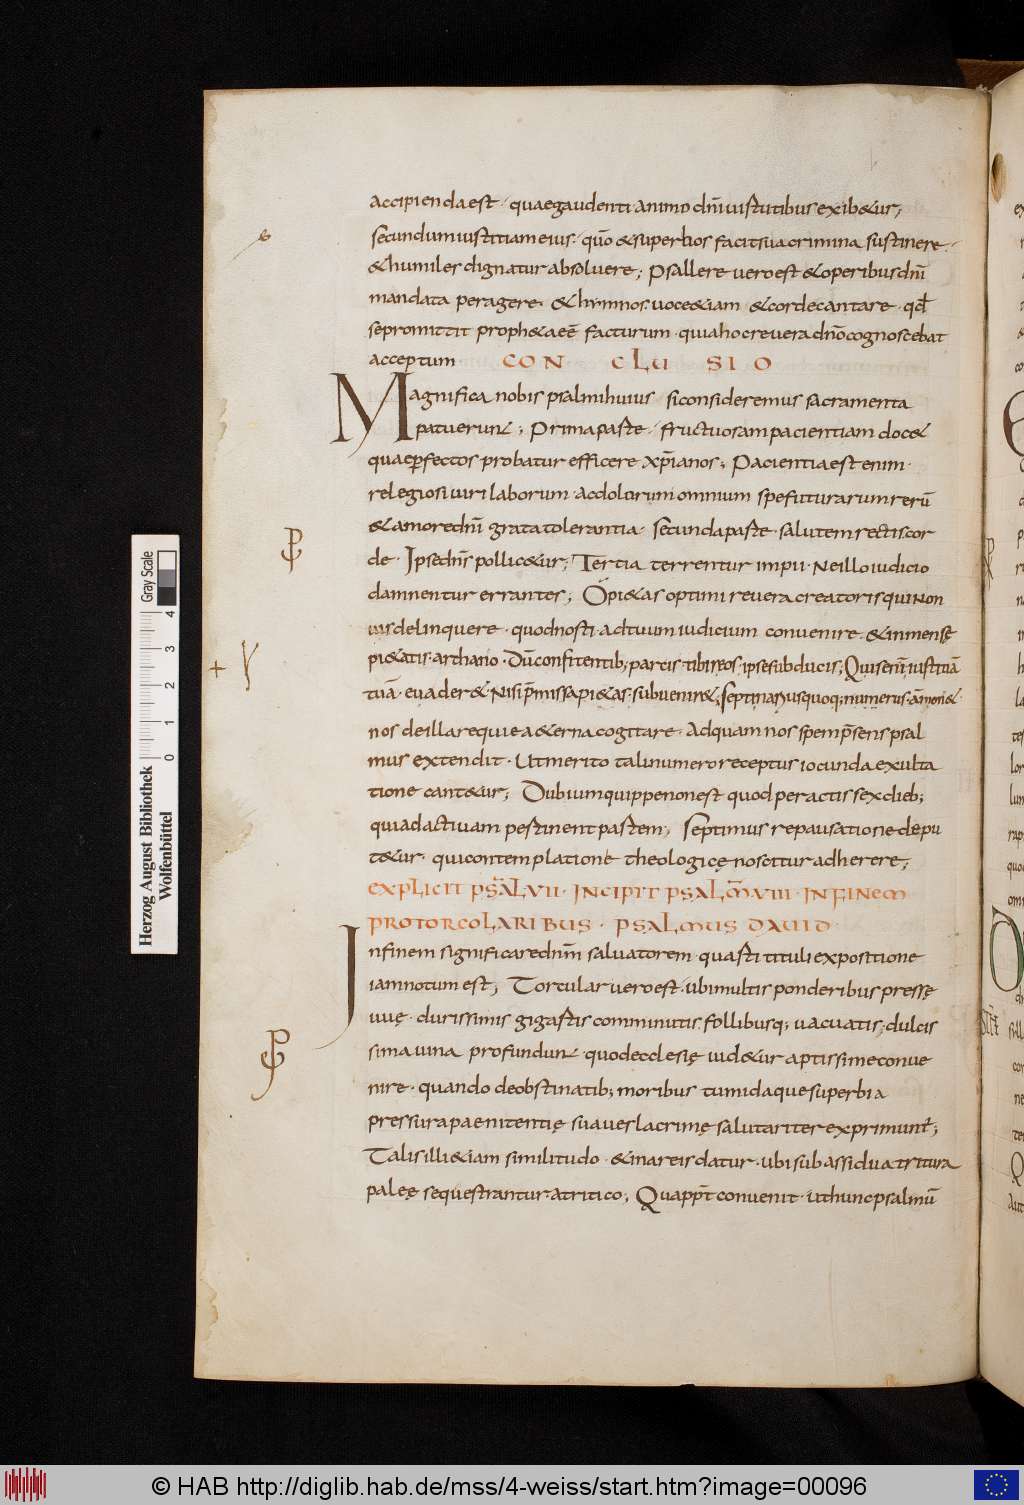 accipienda est · quae gaudenti animo dnī iustitibus exib&ur;
secundum iustitiam eius · quō & superbos facit sua crimina sustinere ·
& humiles dignatur absoluere; Psallere uero est & operibus dnī
mandata peragere · & hymnos uoce &iam & corde cantare · qđ
se promittit proph&a eē facturum · quia hoc reuera dnō cognoscebat
acceptum CON CLU SIO
Magnifica nobis psalmi huius si consideremus sacramenta
patuerunt; Prima parte · fructuosam pacientiam doc&
quae perfectos probatur efficere xp̄ianos; Pacientia est enim ·
relegiosi uiri laborum · ac dolorum omnium spe futurarum rerū
& amore dnī grata tolerantia · secunda parte · salutem rectis cor
de · Ipse dn̄s pollic&ur; Tertia terrentur impii · Ne illo iudicio
damnentur errantes; O pi&as optimi reuera creatoris qui non
uis delinquere · quod nosti · ad tuum iudicium conuenire · & inmensę
pi&atis · archano · Dū confitentib; parcis · tibi reos · ipse subducis; Quis enī iustitiā
tuā · euader& · Nisi p̄missa pi&as · subuenir&; Septinarius quoq; numerus · āmon&
nos de illa requie a&erna cogitare · Ad quam nos spem p̄sens psal
mus extendit · Ut merito tali numero receptus iocunda exulta
tione cant&ur; Dubium quippe non est quod peractis sex dieb;
qui ad actiuam pertinent partem; Septimus repausatione depu
t&ur · qui contemplatione theologicę noscitur adherere;
EXPLICIT PSĀL VII · INCIPIT PSALM̄ VIII · IN FINEM
PRO TORCOLARIBUS · PSALMUS DAUID
In finem significare dnm̄ saluatorem · quasti tituli expositione
iam notum est; Torcular uero est · ubi multis ponderibus pressę
uuę · durissimis gigartis comminutis · follibusq; uacuatis; dulcis
sima uina profundunt · quod ecclesię uid&ur aptissime conue
nire · quando de obstinatib; moribus tumidaque superbia
pressura paenitentię suaues lacrimę salutariter exprimunt̄;
Talis illi &iam similitudo · & in areis datur · ubi sub assidua tritura
paleę sequestrantur a tritico; Qua pp̄t conuenit · ut hunc psalmū
Herzog August Bibliothek
Wolfenbüttel
0 1 2 3 4
Gray Scale
© HAB http://diglib.hab.de/mss/4-weiss/start.htm?image=00096